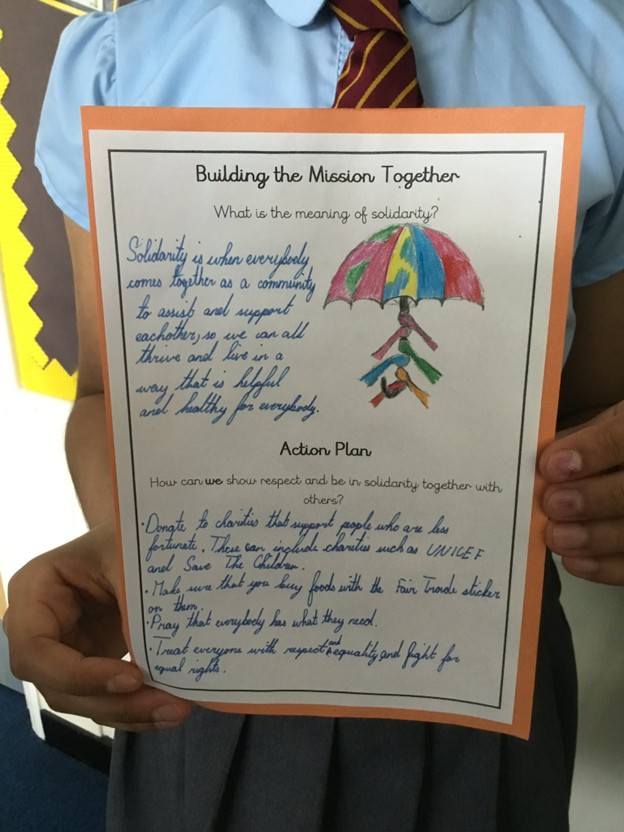 Building the Mission Together
What is the meaning of solidarity?
Solidarity is when everybody
comes together as a community
to assist and support
eachother, so we can all
thrive and live in a
way that is helpful
and healthy for everybody.
Action Plan
How can we show respect and be in solidarity together with
others?
· Donate to charities that support people who are less
fortunate. These can include charities such as UNICEF
and Save The Children.
· Make sure that you buy foods with the Fair Trade sticker
on them.
· Pray that everybody has what they need.
· Treat everyone with respect and equality and fight for
equal rights.